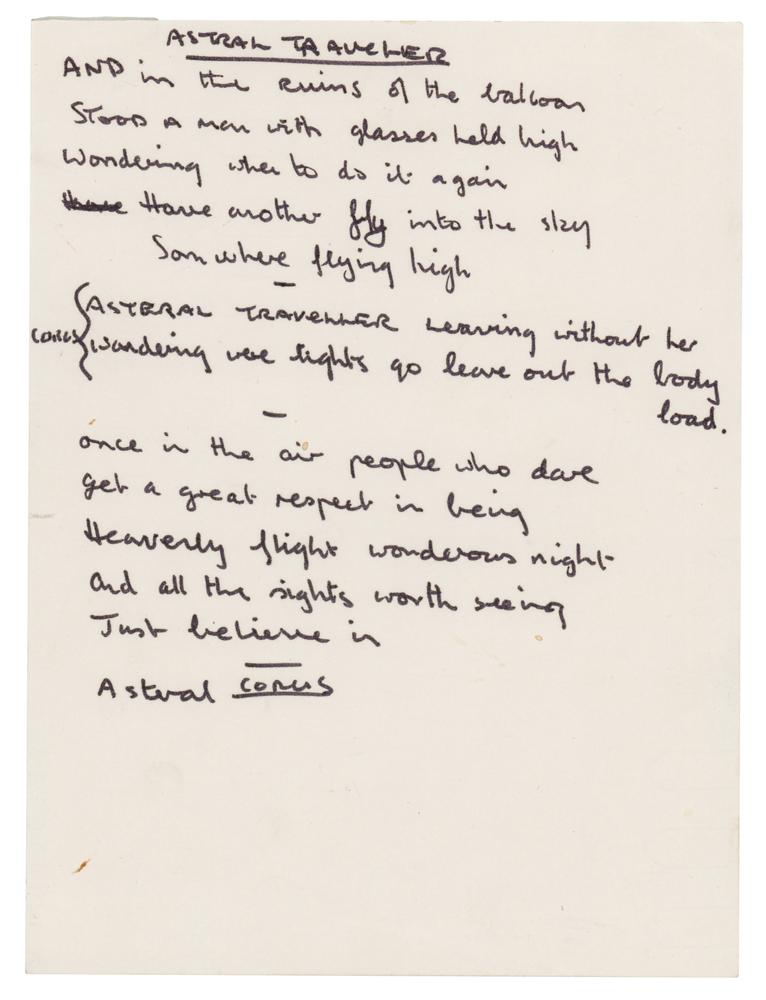 ASTRAL TRAVELLER
AND in the ruins of the balloon
STOOD A man with glasses held high
Wondering when to do it again
Have Have another fly into the sky
Somwhere flying high
ASTERAL TRAVELLER Leaving without her
CORUS wandering vere lights go leave out the body
load.
once in the air people who dare
get a great respect in being
Heavenly flight wonderous night
and all the sights worth seeing
Just believe in
Asteral CORUS